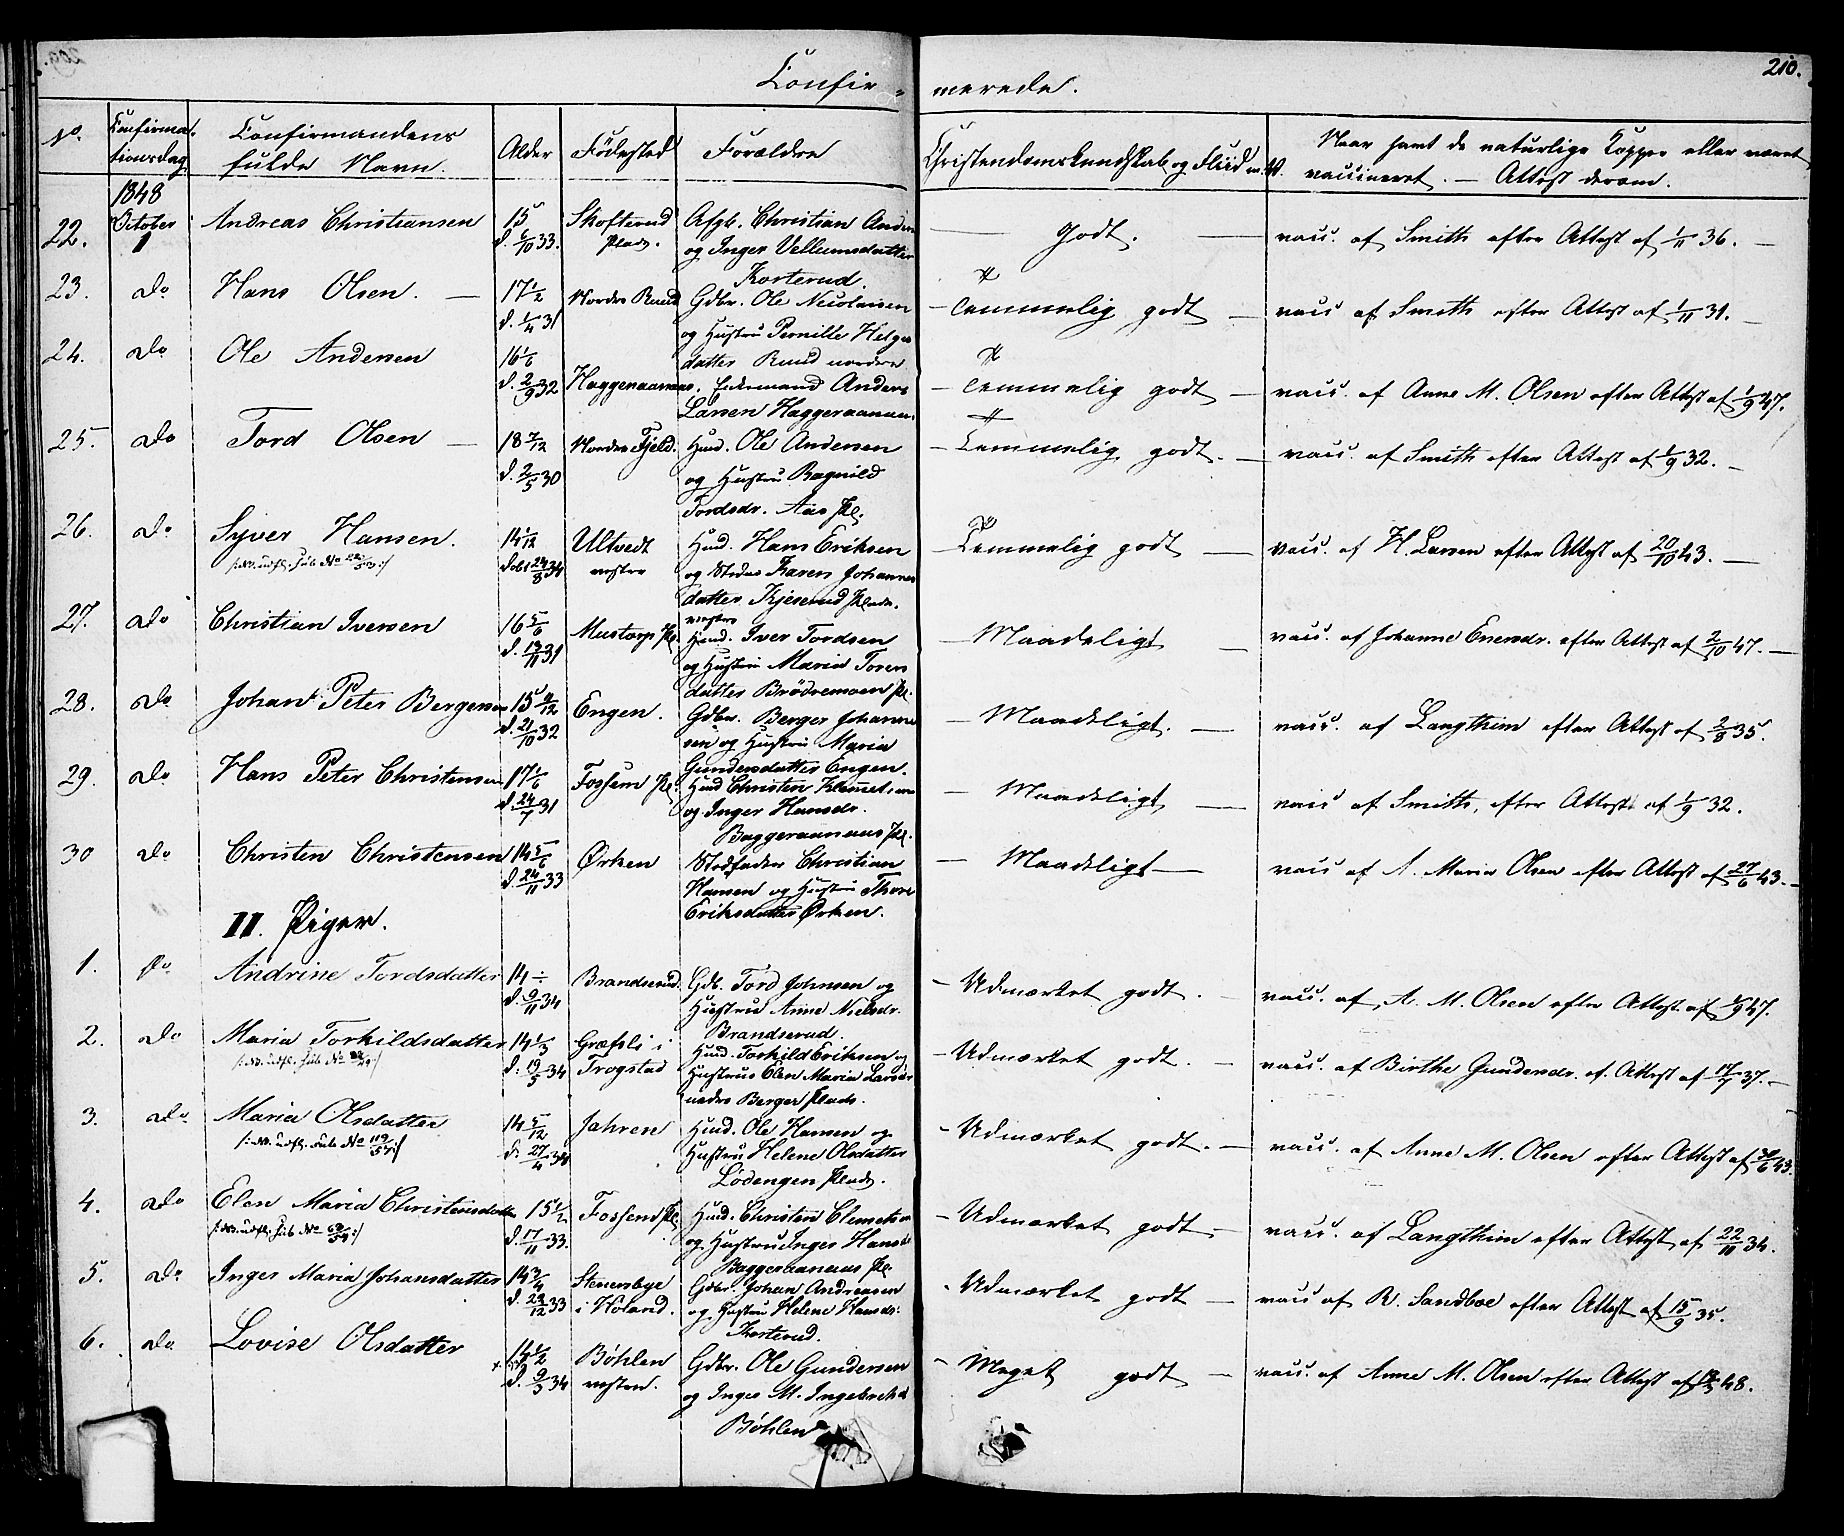 Confir- merede.
210.
No.
Confirma-
tionsdag
Confirmandens
fulde Navn.
Alder
Födested
Forældre
Christendomskundskab og Fliid m. v.
Naar havt de naturlige Kopper eller været
vaccineret. — Attest derom.
1848
22. October 1 Andreas Christiansen 15 d. 6/10 33. Skofterud Plads. Afgb. Christian Anders
og Inger Vellumsdatter
Korterud.
— Godt. — vacc. af Smith efter Attest af 1/11 36. —
23. do Hans Olsen. — 17 1/2 d. 1/4 31 Nordre Ruud Gdbr. Ole Nicolaisen
og Hustru Pernille Helges
datter Ruud nordre
— Temmelig godt — vacc af Smith efter Attest af 1/11 31. —
24. do Ole Andersen 16 1/6 d. 2/9 32 Haggenaanaas. Enkemand Anders
Larsen Haggenaanaas
— Temmelig godt — vacc. af Anne M. Olsen efter Attest af 1/9 47.
25. do Tord Olsen — 18 5/12 d. 2/5 30 Nordre Fjeld. Huusd. Ole Andersen
og Hustru Ragnild
Tordsdr. Aas Pl.
— Temmelig godt. — vacc. af Smith efter Attest af 1/9 32. —
26. do Syver Hansen. 14 1/12 døbt 24/8 34 Ultvedt vestre Huusd. Hans Eriksen
og Karen Johannes
datter Kjeserud Plads.
vestre
— Temmelig godt — vacc. af H. Larsen efter Attest af 20/10 43. —
27. do Christian Iversen 16 5/6 d. 19/11 31 Mustorp Pl. Huusd. Iver Tordsen
og Hustru Maria Tores
datter Brödremoen Pl.
— Maadeligt — vacc. af Johanne Enersdr. efter Attest af 2/10 47. —
28. do Johan Peter Bergersen 15 11/12 d. 21/10 32 Engen. Gdbr. Berger Johanne
sen og Hustru Maria
Gundersdatter Engen.
— Maadeligt. — vacc. af Langthim efter Attest af 2/8 35.
29. do Hans Peter Christensen 17 1/6 d. 24/7 31 Fossum Pl. Huusd Christen Klemetsen
og Inger Hansdr.
Baggeraanaas Pl.
— Maadeligt — vacc af Smith, efter Attest af 1/9 32.
30 do Christen Christensen 14 5/6 d. 24/11 33 Ørken Stedfader Christian
Hansen og Hustru Thore
Eriksdatter Ørken.
— Maadeligt — vacc af A. Maria Olsen efter Attest af 27/6 43. —
II. Piger.
1. do Andrine Tordsdatter 14 ÷ d. 9/11 34 Brandserud. Gdb. Tord Johnsen og
Hustrue Anne Nielsdr.
Brandserud.
— Udmærket godt. vacc. af A. M. Olsen efter Attest af 1/9 47.
2. do Maria Torkildsdatter 14 1/3 d. 19/5 34 Græfsli i Trogstad Huusd. Torkild Eriksen og
Hustrue Elen Maria Larsdr
nedre Berger Plads.
— Udmærket godt. — vacc. af Birthe Gundersdr. e. Attest af 17/7 37. —
3. do Maria Olsdatter 14 5/12 d. 27/4 34 Jahren Huusd. Ole Hansen og
Hustru Helene Olsdatter
Lødengen Plads.
— Udmærket godt. — vacc. af Anne M. Olsen efter Attest af 30/6 43.
4. do Elen Maria Christensdatter 15 1/2 d. 17/11 33. Fossund Pl. Huusd. Christen Clemetsen
og Hustru Inger Hansd
Baggeraanaas Pl.
— Udmærket godt — vacc. af Langthim efter Attest af 22/11 34.
5. do Inger Maria Johansdatter 14 3/4 d. 29/12 33 Stenersbye i Höland. Gdbr. Johan Andreasen
og Hustru Helene Hansd.
Korterud.
— Udmærket godt — vacc af R. Sandboe efter Attest af 15/9 35.
6. do Lovise Olsdatter 14 1/2 d. 9/3 34 Böhlen vestre. Gdbr. Ole Gundersen
og Inger M. Ingebretsd
Böhlen
— Meget godt — vacc. af Anne M. Olsen efter Attest af 48.